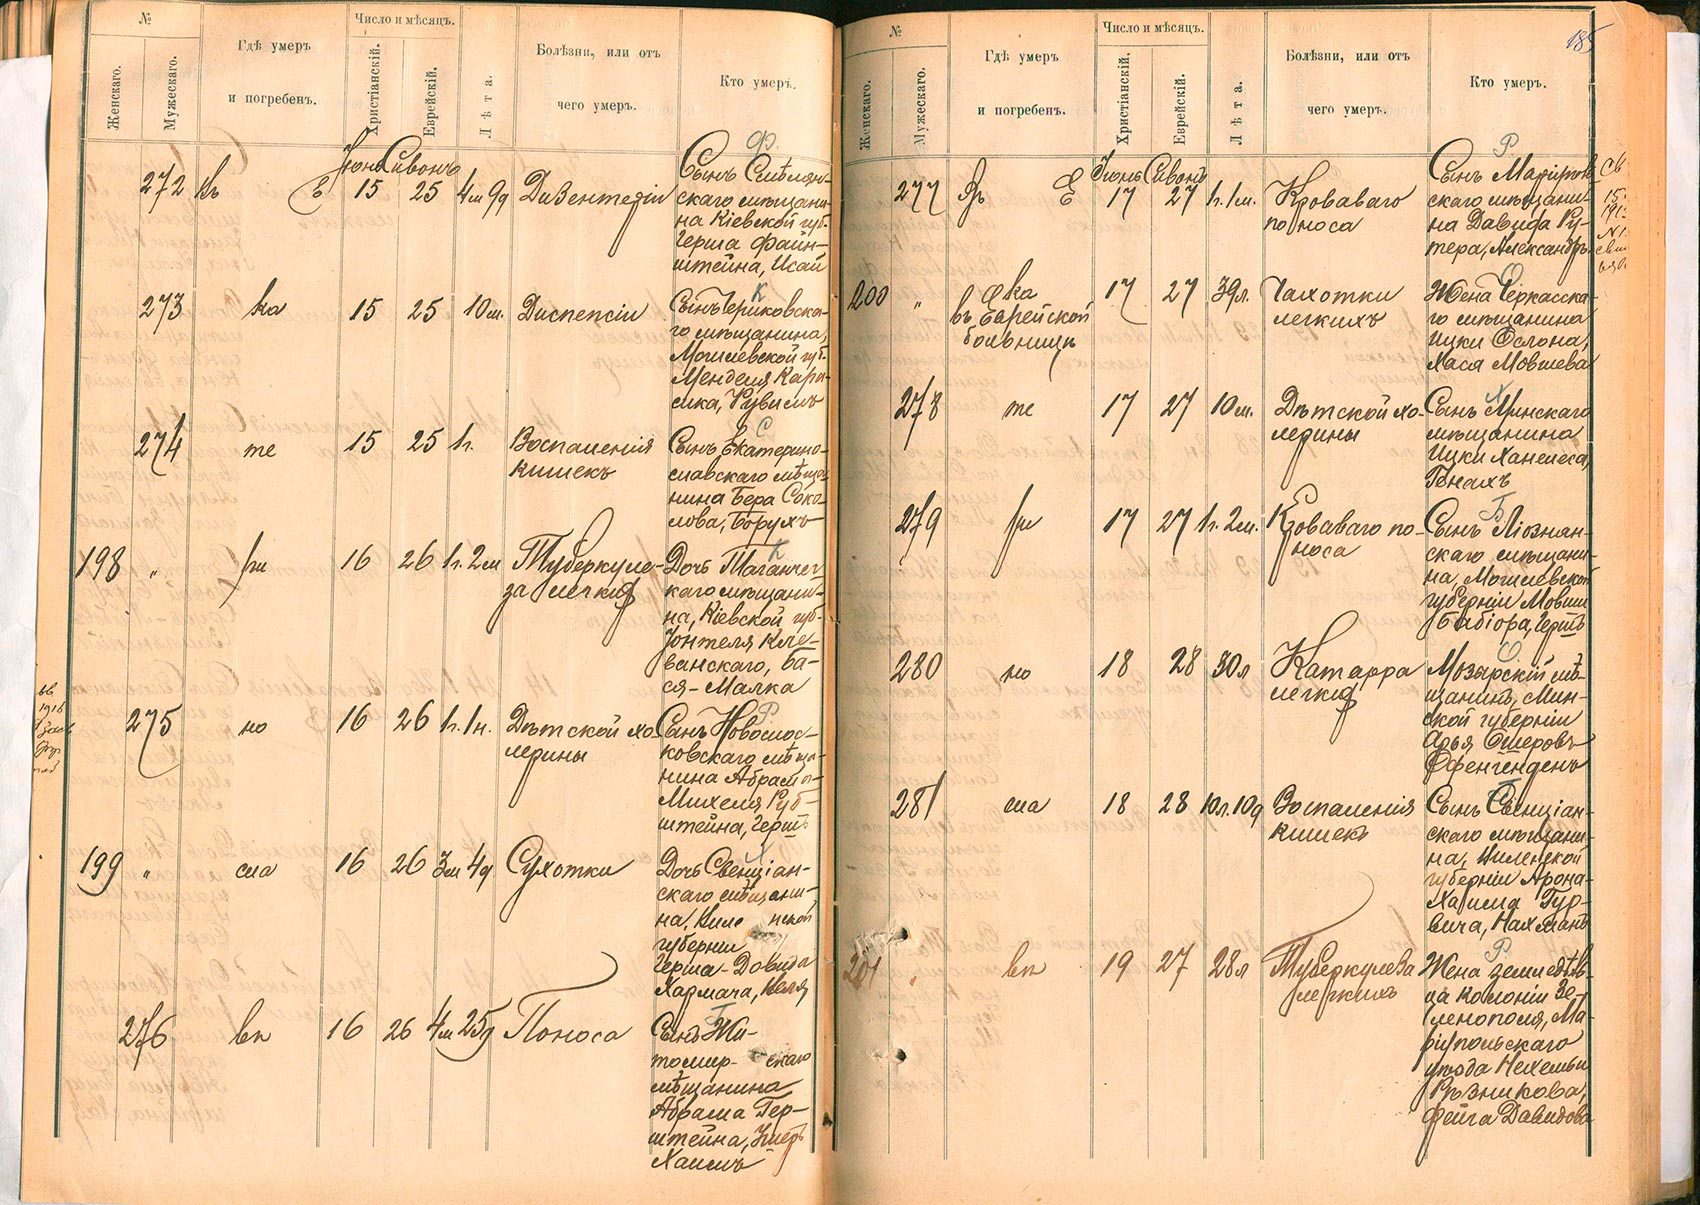 №
Женскаго.
Мужескаго.
Гдѣ умеръ
и погребенъ.
Число и мѣсяцъ.
Христіанскій.
Еврейскій.
Лѣта.
Болѣзни, или отъ
чего умеръ.
Кто умеръ.
Ф.
Сивонъ
272 15 25 4м 9д Дизентеріи
Сынъ Смѣлян-
скаго мѣщани-
на Кіевской губ.
Герша Файн-
штейна, Исай
К
273 15 25 10 м. Диспепсіи
Сынъ Чериковска-
го мѣщанина,
Могилевской губ.
Менделя Кара-
сика, Рувимъ
С
274 те 15 25 1 г. Воспаленія
кишекъ
Сынъ Екатерино-
славскаго мѣща-
нина Бера Соко-
лова, Борухъ
К
198 „ 16 26 1г. 2м Туберкуле-
за легкихъ
Дочь Таганчес-
каго мѣщани-
на, Кіевской губ.
Кле-
ванскаго, Ба-
ся-Малка
Р
275 но 16 26 Дѣтской хо-
лерины
Сынъ Новомос-
ковскаго мѣща-
нина Абрама-
Михеля Руб-
штейна, Гершъ
Х
199 „ сла 16 26 3м 4д Сухотки
Дочь Свенціан-
скаго мѣщани-
на, Виленской
губерніи
Герша-Довида
Хармача, Неля
Г
276 вп 16 26 4м 25д Поноса
Сынъ Жи-
томирскаго
мѣщанина
Абрама Гер-
штейна,
Хаимъ
185
№
Женскаго.
Мужескаго.
Гдѣ умеръ
и погребенъ.
Число и мѣсяцъ.
Христіанскій.
Еврейскій.
Лѣта.
Болѣзни, или отъ
чего умеръ.
Кто умеръ.
Р
Іюнь Сивонъ
277 17 27 1г. 1м. Кроваваго
поноса
Сынъ
скаго мѣщани-
на Давида Ру-
тера, Александръ
О
200 „
въ Еврейской
больницѣ
17 27 39л. Чахотки
легкихъ
Жена Черкасска-
го мѣщанина
Ицки Ослона,
Хася Мовшева
Х
278 те 17 27 10 м. Дѣтской хо-
лерины
Сынъ Минскаго
мѣщанина
Ицки Ханелеса,
Генахъ
Б
279 17 27 1г. 2м. Кроваваго по-
носа
Сынъ Ліознян-
скаго мѣщани-
на, Могилевской
губерніи Мовши
Бабіора, Гершъ
О
280 но 18 28 30л Катарра
легкихъ
Мозырскій мѣ-
щанинъ, Мин-
ской губерніи
Арья Ошеровъ
Офенгенденъ
Г
281 сла 18 28 10л. 10д Воспаленія
кишекъ
Сынъ Свенціан-
скаго мѣщани-
на, Виленской
губерніи Арона-
Хаима Гур-
вича, Нахманъ
Р
201 „ вп 19 27 28л Туберкулеза
легкихъ
Жена земледѣль-
ца колоніи Зе-
ленополя, Ма-
ріупольскаго
уѣзда
Рѣзникова,
Фейга Давидова